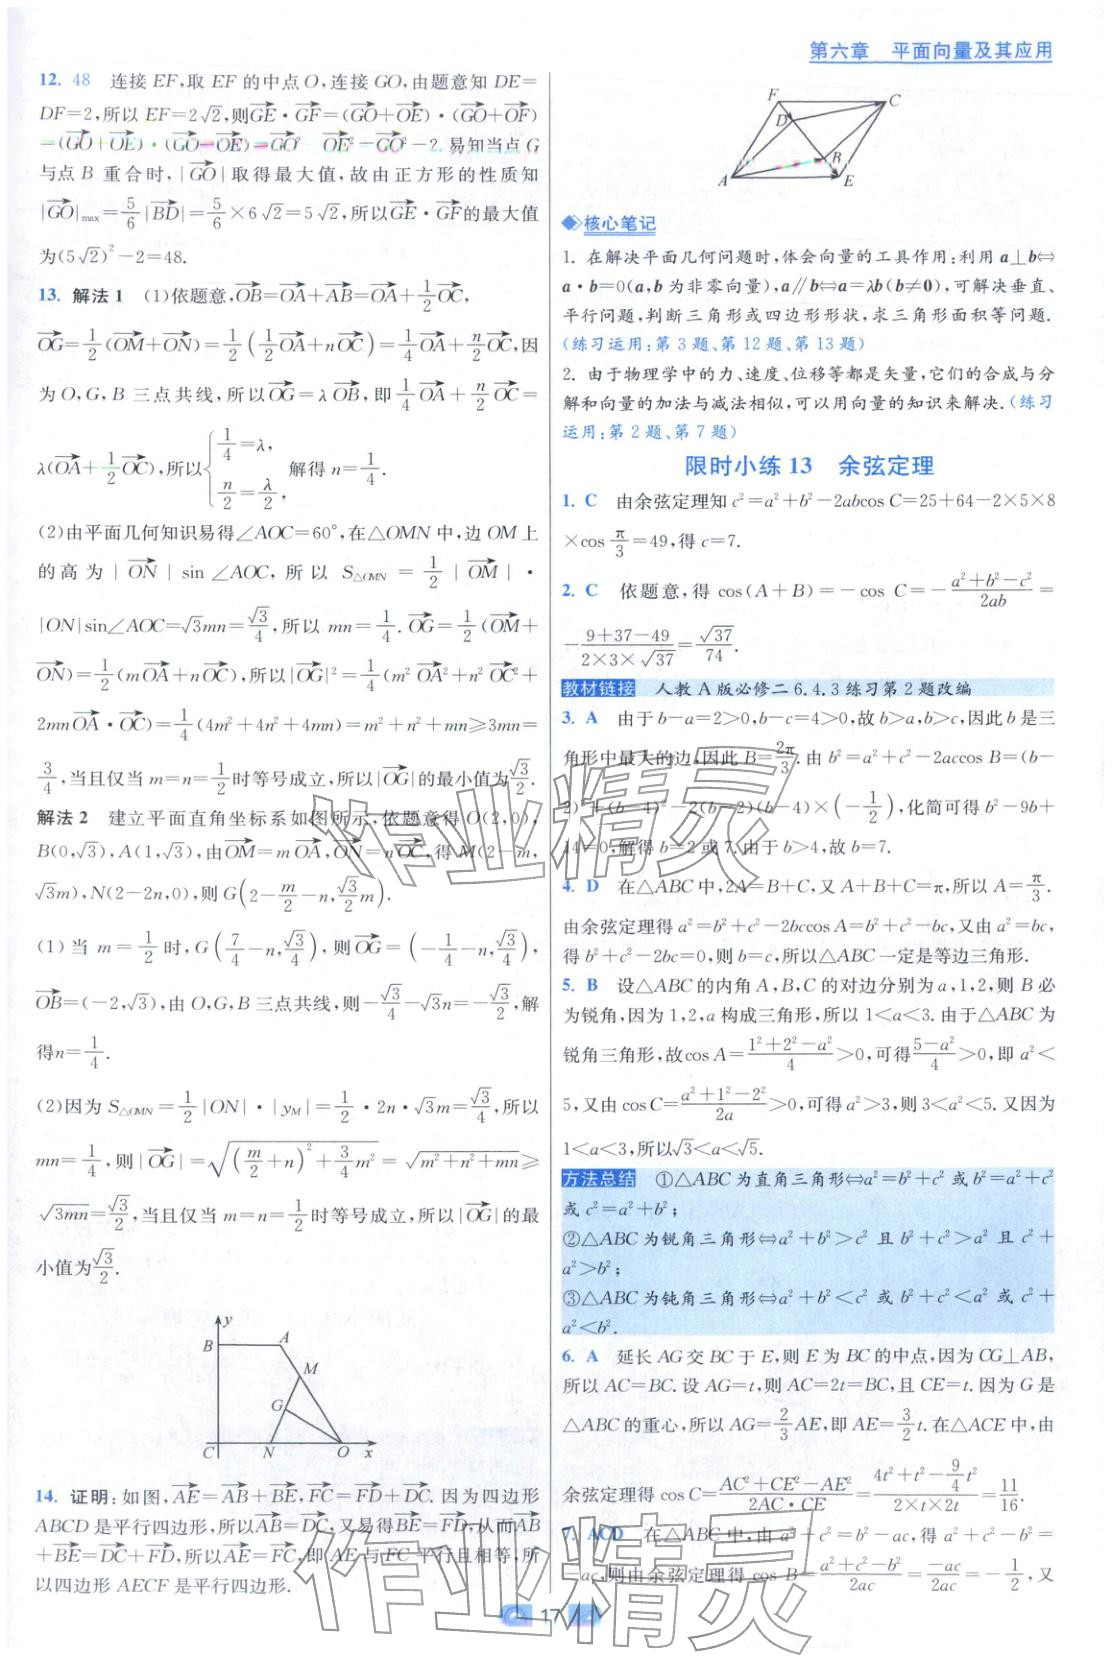 第六章 平面向量及其应用
12. 48 连接EF,取EF的中点O,连接GO,由题意知DE=
DF=2,所以EF=2√2,则GE→·GF→=(GO→+OE→)·(GO→+OF→)
=(GO→+OE→)·(GO→-OE→)=GO→²-OE→²=GO→²-2.易知当点G
与点B重合时,|GO→|取得最大值,故由正方形的性质知
|GO→|max=5/6|BD→|=5/6×6√2=5√2,所以GE→·GF→的最大值
为(5√2)²-2=48.
13. 解法1 (1)依题意,OB→=OA→+AB→=OA→+1/2OC→,
OG→=1/2(OM→+ON→)=1/2(1/2OA→+nOC→)=1/4OA→+n/2OC→,因
为O,G,B三点共线,所以OG→=λOB→,即1/4OA→+n/2OC→=
λ(OA→+1/2OC→),所以{1/4=λ, n/2=λ/2, 解得n=1/4.
(2)由平面几何知识易得∠AOC=60°,在△OMN中,边OM上
的高为|ON→|sin∠AOC,所以S△OMN=1/2|OM→|·
|ON|sin∠AOC=√3mn=√3/4,所以mn=1/4.OG→=1/2(OM→+
ON→)=1/2(mOA→+nOC→),所以|OG→|²=1/4(m²OA→²+n²OC→²+
2mnOA→·OC→)=1/4(4m²+4n²+4mn)=m²+n²+mn≥3mn=
3/4,当且仅当m=n=1/2时等号成立,所以|OG→|的最小值为√3/2.
解法2 建立平面直角坐标系如图所示,依题意得O(2,0),
B(0,√3),A(1,√3),由OM→=mOA→,ON→=nOC→,得M(2-m,
√3m),N(2-2n,0),则G(2-m/2-n,√3/2m).
(1)当m=1/2时,G(7/4-n,√3/4),则OG→=(-1/4-n,√3/4),
OB→=(-2,√3),由O,G,B三点共线,则-√3/4-√3n=-√3/2,解
得n=1/4.
(2)因为S△OMN=1/2|ON|·|yM|=1/2·2n·√3m=√3/4,所以
mn=1/4,则|OG→|=√((m/2+n)²+3/4m²)=√(m²+n²+mn)≥
√(3mn)=√3/2,当且仅当m=n=1/2时等号成立,所以|OG→|的最
小值为√3/2.
y
B A
M
G
C N O x
14. 证明:如图,AE→=AB→+BE→,FC→=FD→+DC→.因为四边形
ABCD是平行四边形,所以AB→=DC→,又易得BE→=FD→,从而AB→
+BE→=DC→+FD→,所以AE→=FC→,即AE与FC平行且相等,所
以四边形AECF是平行四边形.
F C
D
B
A E
核心笔记
1. 在解决平面几何问题时,体会向量的工具作用:利用a⊥b⇔
a·b=0(a,b为非零向量),a∥b⇔a=λb(b≠0),可解决垂直、
平行问题,判断三角形或四边形形状,求三角形面积等问题.
(练习运用:第3题、第12题、第13题)
2. 由于物理学中的力、速度、位移等都是矢量,它们的合成与分
解和向量的加法与减法相似,可以用向量的知识来解决.(练习
运用:第2题、第7题)
限时小练13 余弦定理
1. C 由余弦定理知c²=a²+b²-2abcos C=25+64-2×5×8
×cos π/3=49,得c=7.
2. C 依题意,得cos(A+B)=-cos C=-(a²+b²-c²)/2ab=
-(9+37-49)/(2×3×√37)=√37/74.
教材链接 人教A版必修二6.4.3练习第2题改编
3. A 由于b-a=2>0,b-c=4>0,故b>a,b>c,因此b是三
角形中最大的边,因此B=2π/3.由b²=a²+c²-2accos B=(b-
2)²+(b-4)²-2(b-2)(b-4)×(-1/2),化简可得b²-9b+
14=0,解得b=2或7,由于b>4,故b=7.
4. D 在△ABC中,2A=B+C,又A+B+C=π,所以A=π/3.
由余弦定理得a²=b²+c²-2bccos A=b²+c²-bc,又由a²=bc,
得b²+c²-2bc=0,则b=c,所以△ABC一定是等边三角形.
5. B 设△ABC的内角A,B,C的对边分别为a,1,2,则B必
为锐角,因为1,2,a构成三角形,所以1<a<3.由于△ABC为
锐角三角形,故cos A=(1²+2²-a²)/4>0,可得(5-a²)/4>0,即a²<
5,又由cos C=(a²+1²-2²)/2a>0,可得a²>3,则3<a²<5.又因为
1<a<3,所以√3<a<√5.
方法总结 ①△ABC为直角三角形⇔a²=b²+c²或b²=a²+c²
或c²=a²+b²;
②△ABC为锐角三角形⇔a²+b²>c²且b²+c²>a²且c²+
a²>b²;
③△ABC为钝角三角形⇔a²+b²<c²或b²+c²<a²或c²+
a²<b².
6. A 延长AG交BC于E,则E为BC的中点,因为CG⊥AB,
所以AC=BC.设AG=t,则AC=2t=BC,且CE=t.因为G是
△ABC的重心,所以AG=2/3AE,即AE=3/2t.在△ACE中,由
余弦定理得cos C=(AC²+CE²-AE²)/(2AC·CE)=(4t²+t²-9/4t²)/(2×t×2t)=11/16.
7. ACD 在△ABC中,由a²+c²=b²-ac,得a²+c²-b²=
-ac,则由余弦定理得cos B=(a²+c²-b²)/2ac=-ac/2ac=-1/2,又
17
作业精灵
作业精灵